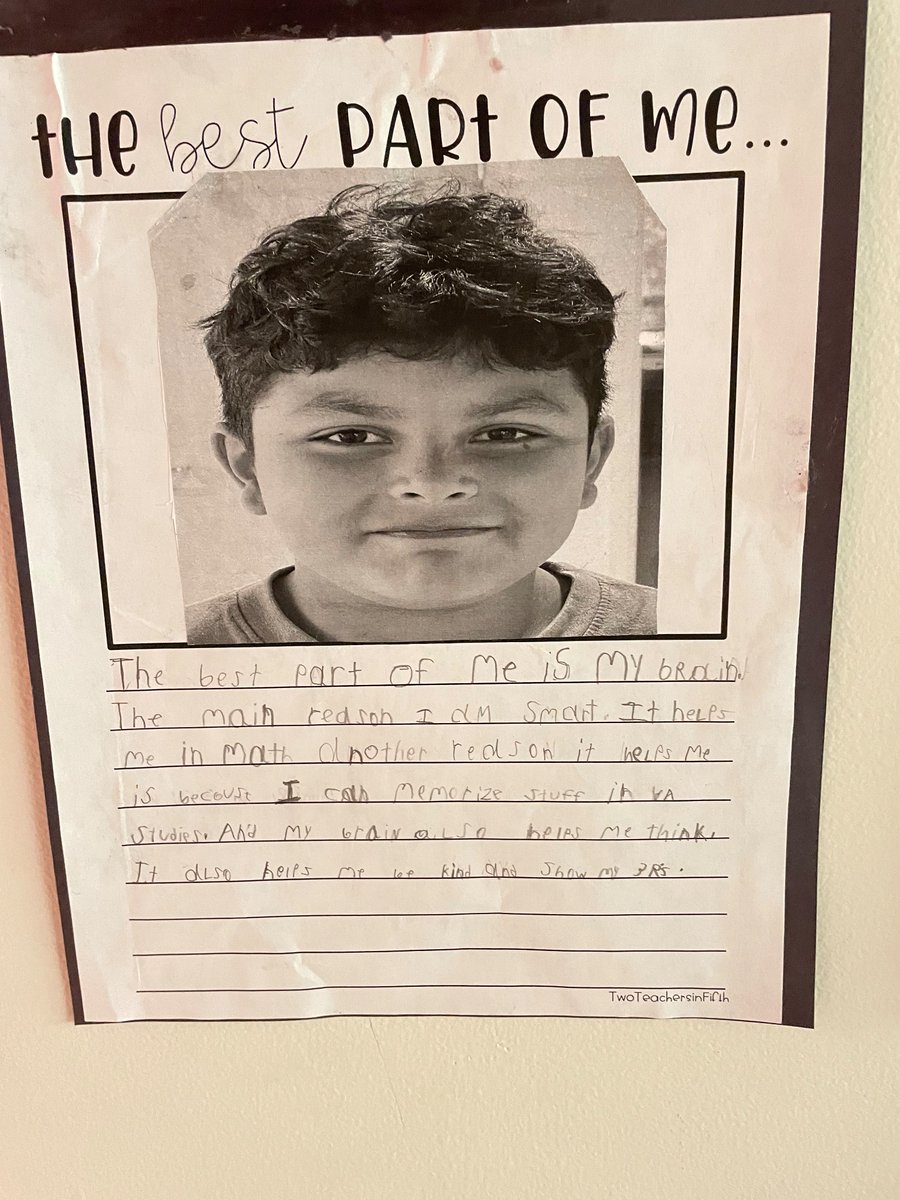 tHe best PARt OF Me...
The best part of Me is My brain.
The main reason I am Smart. It helps
me in Math another reason it helps Me
is becouse I can Memorize stuff in VA
Studies. And my brain also helps me think.
It also helps me be kind and Show my 3Rs.
TwoTeachersinFifth